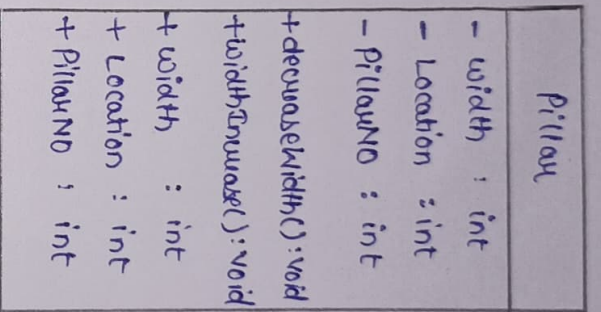 Pillar
- width : int
- Location : int
- PillarNO : int
+decreaseWidth() : void
+widthIncrease() : void
+ width : int
+ Location : int
+ PillarNO : int